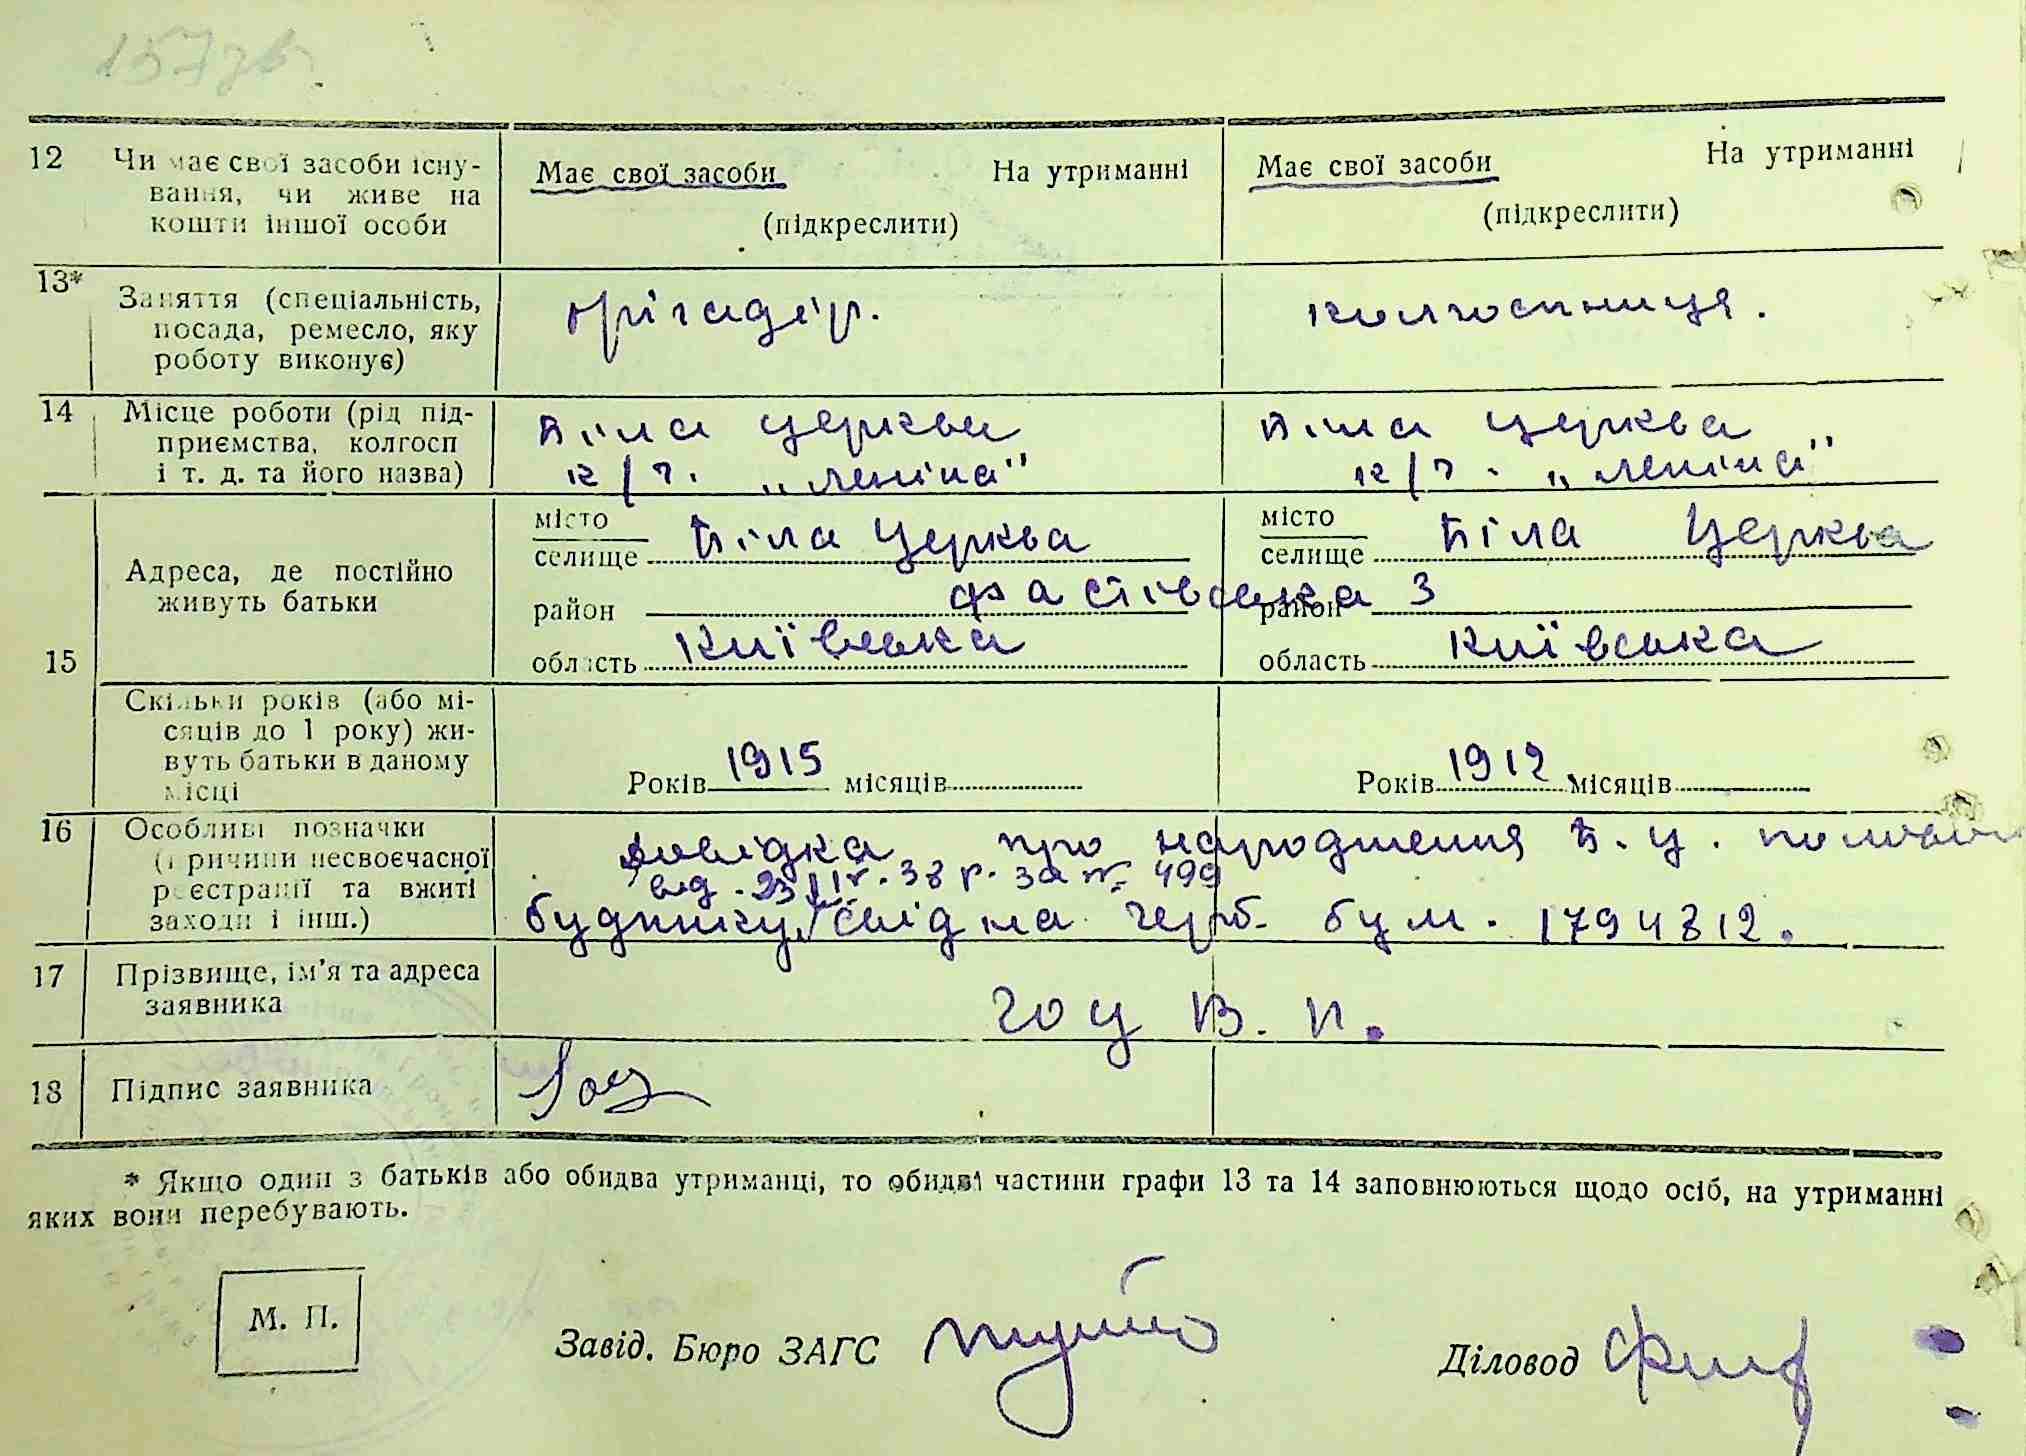 157зв.
12 Чи має свої засоби існу- Має свої засоби На утриманні Має свої засоби На утриманні
вання, чи живе на
кошти іншої особи (підкреслити) (підкреслити)
13* Заняття (спеціальність, брігадєр. колгоспниця.
посада, ремесло, яку
роботу виконує)
14 Місце роботи (рід під- Біла церква Біла церква
приємства, колгосп
і т. д. та його назва) к/г. „Леніна" к/г. „Леніна"
місто місто
селище Біла Церква селище Біла Церква
Адреса, де постійно
живуть батьки район Фастівська 3 район
15 область Київська область Київська
Скільки років (або мі-
сяців до 1 року) жи-
вуть батьки в даному Років 1915 місяців Років 1912 місяців
місці
16 Особливі позначки Довідка про народження Б. Ц.
(причини несвоєчасної від 23 38 р. за № 499
реєстрації та вжиті
заходи і інш.) будинку, свід на герб. бум. 1794812.
17 Прізвище, ім'я та адреса
заявника Гоц В. П.
18 Підпис заявника Гоц
* Якщо один з батьків або обидва утриманці, то обидві частини графи 13 та 14 заповнюються щодо осіб, на утриманні
яких вони перебувають.
М. П.
Завід. Бюро ЗАГС Діловод